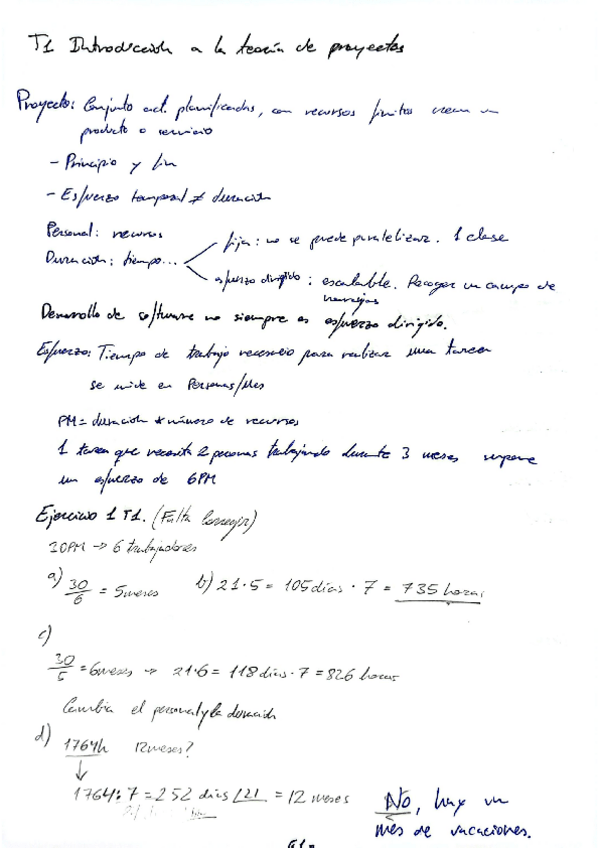 T1 Introducción a la teoría de proyectos
Proyecto: Conjunto act. planificadas, con recursos finitos crean un
producto o servicio
- Principio y fin
- Esfuerzo temporal ≠ duración
Personal: recursos
Duración: tiempo...
fija: no se puede paralelizar. 1 clase
esfuerzo dirigido: escalable. Recoger un campo de
naranjas
Desarrollo de software no siempre es esfuerzo dirigido.
Esfuerzo: Tiempo de trabajo necesario para realizar una tarea
se mide en Personas/Mes
PM = duración * número de recursos
1 tarea que necesita 2 personas trabajando durante 3 meses supone
un esfuerzo de 6PM
Ejercicio 1 T1. (Falta Corregir)
30PM → 6 trabajadores
a) 30/6 = 5 meses b) 21·5 = 105 días · 7 = 735 horas
c)
30/5 = 6 meses → 21·6 = 118 días · 7 = 826 horas
Cambia el personal y la duración
d) 1764h 12 meses?
↓
1764:7 = 252 días |21 = 12 meses No, hay un
mes de vacaciones.